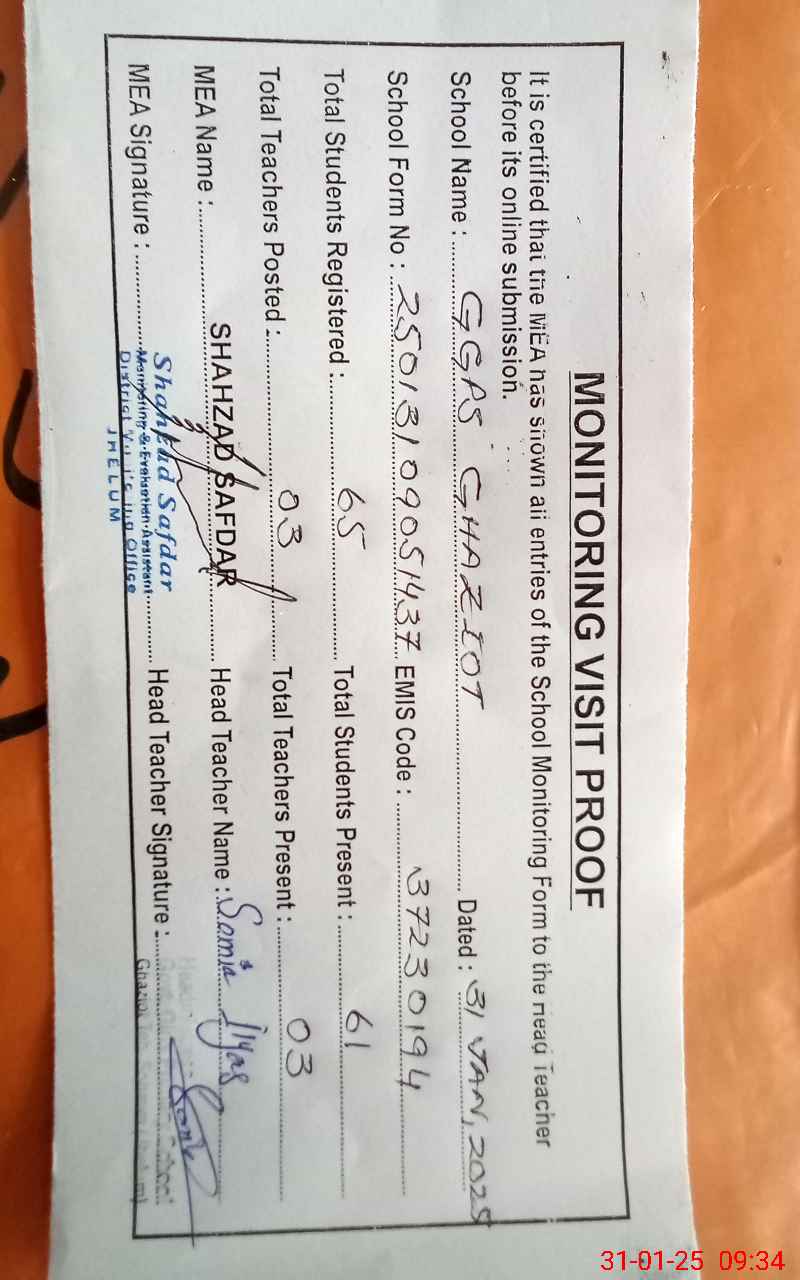 MONITORING VISIT PROOF
It is certified that the MEA has shown all entries of the School Monitoring Form to the Head Teacher
before its online submission.
School Name : GGPS GHAZIOT Dated : 31 JAN, 2025
School Form No : 25013109051437 EMIS Code : 37230194
Total Students Registered : 65 Total Students Present : 61
Total Teachers Posted : 03 Total Teachers Present : 03
MEA Name : SHAHZAD SAFDAR Head Teacher Name : Samia Ilyas
MEA Signature : Head Teacher Signature :
Shahzad Safdar
Monitoring & Evaluation Assistant
District Office
JHELUM
31-01-25 09:34